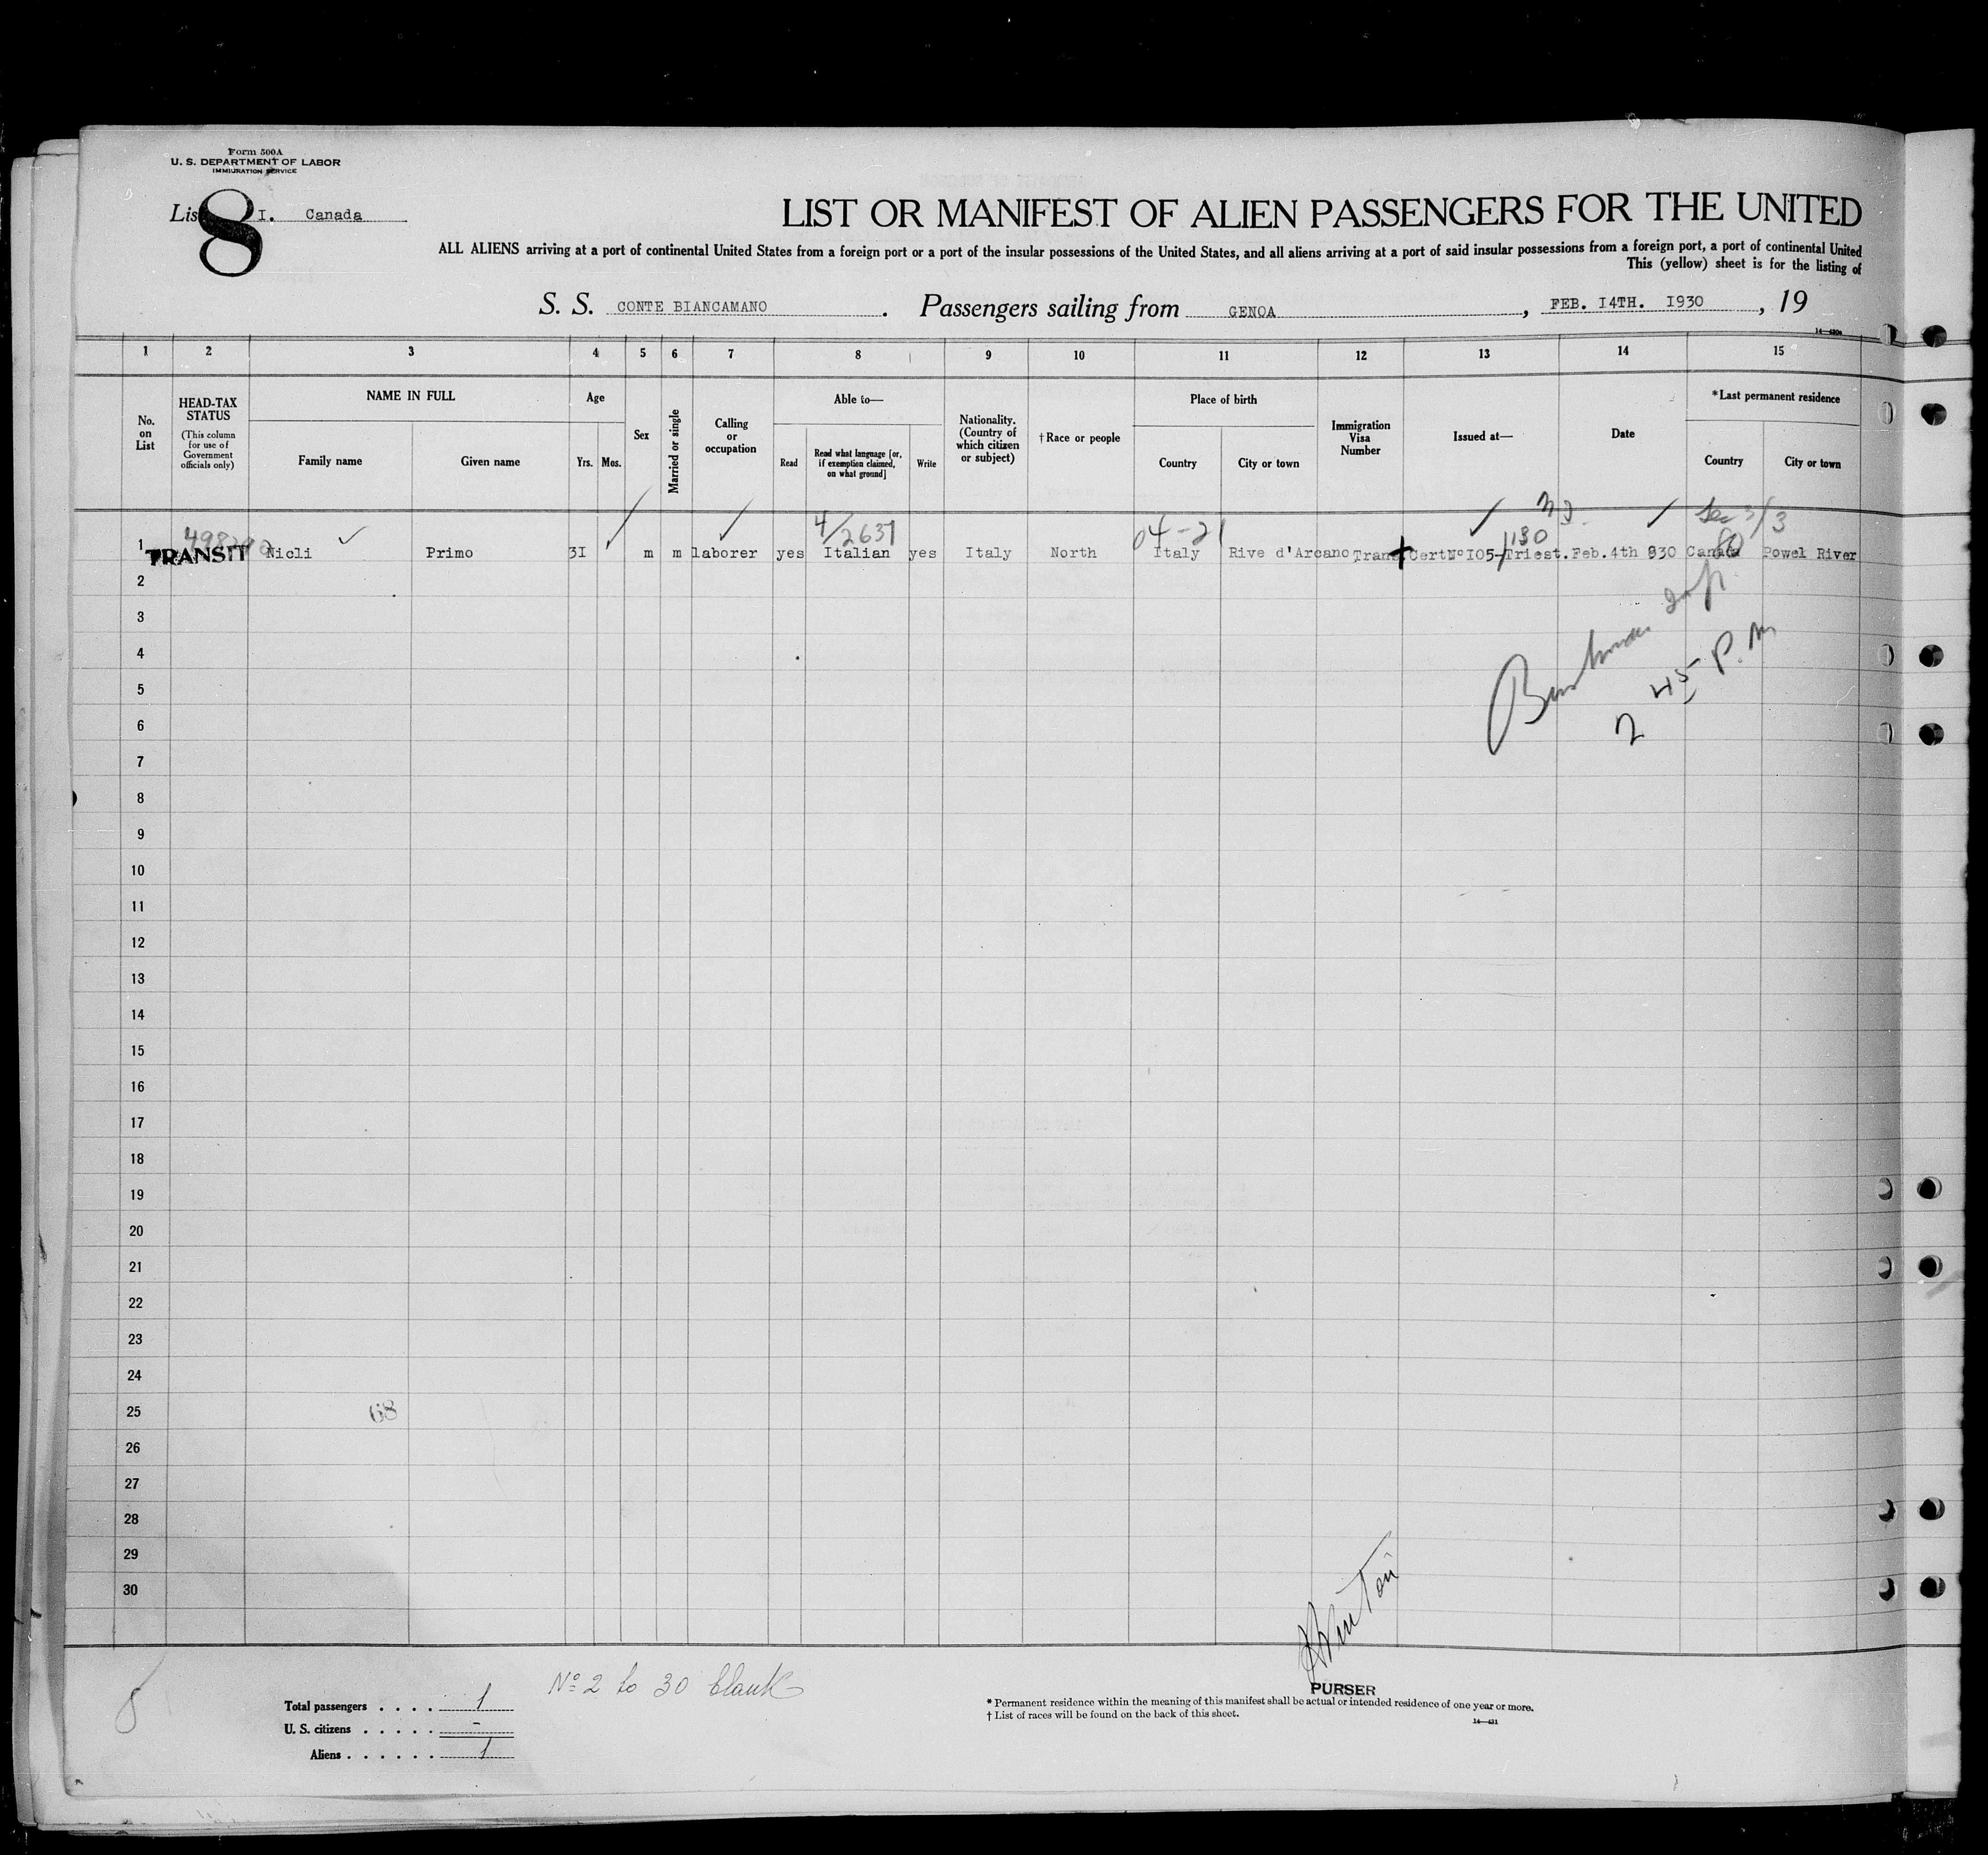 Form 500A
U. S. DEPARTMENT OF LABOR
IMMIGRATION SERVICE
8
I. Canada
LIST OR MANIFEST OF ALIEN PASSENGERS FOR THE UNITED
ALL ALIENS arriving at a port of continental United States from a foreign port or a port of the insular possessions of the United States, and all aliens arriving at a port of said insular possessions from a foreign port, a port of continental United
This (yellow) sheet is for the listing of
S. S. CONTE BIANCAMANO. Passengers sailing from GENOA, FEB. I4TH. I930, 19
1 2 3 4 5 6 7 8 9 10 11 12 13 14 15
No. on List
HEAD-TAX STATUS
(This column for use of Government officials only)
NAME IN FULL
Family name Given name
Age
Yrs. Mos.
Sex
Married or single
Calling or occupation
Able to—
Read
Read what language [or, if exemption claimed, on what ground]
Write
Nationality. (Country of which citizen or subject)
†Race or people
Place of birth
Country City or town
Immigration Visa Number
Issued at—
Date
*Last permanent residence
Country City or town
4/2637 04-21
1 TRANSIT Nicli Primo 3I m m laborer yes Italian yes Italy North Italy Rive d'Arcano Trans Cert NoI05-Triest. Feb. 4th 930 Canada Powel River
2
3
4
5
2 45 P. M
6
7
8
9
10
11
12
13
14
15
16
17
18
19
20
21
22
23
24
25
68
26
27
28
29
30
PURSER
No 2 to 30 blank
Total passengers . . . . 1
U. S. citizens . . . . . -
Aliens . . . . . . 1
* Permanent residence within the meaning of this manifest shall be actual or intended residence of one year or more.
† List of races will be found on the back of this sheet.